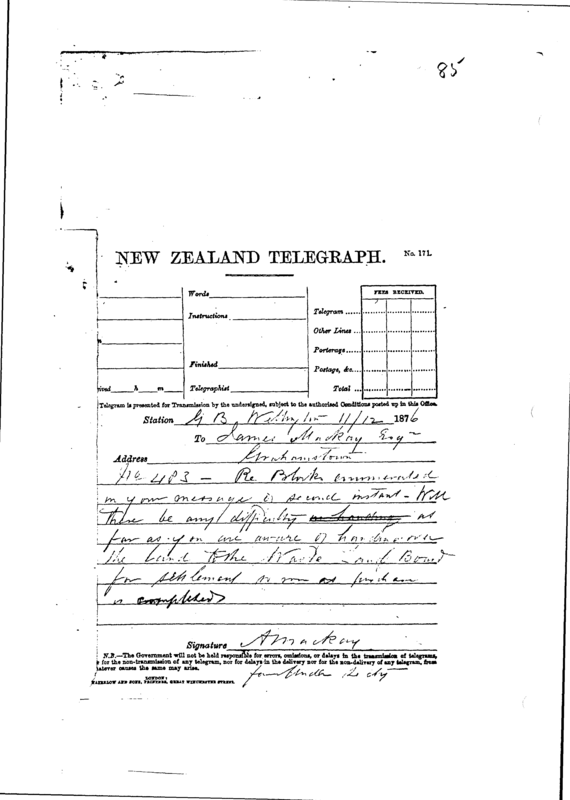 85
NEW ZEALAND TELEGRAPH. No. 171.
Words
Instructions
Finished
Telegraphist
h m
FEES RECEIVED.
Telegram
Other Lines
Porterage
Postage, &c.
Total
Telegram is presented for Transmission by the undersigned, subject to the authorised Conditions posted up in this Office.
Station G B, Wellington 11/12 1876
To James Mackay Esqr
Address Grahamstown
No 483 - Re Blocks enumerated
in your message of second instant - Will
there be any difficulty in handing as
far as you are aware of handing over
the land to the Waste Land Board
for settlement so soon as purchase
is completed
Signature A Mackay
for Under Secty
N.B.—The Government will not be held responsible for errors, omissions, or delays in the transmission of telegrams,
for the non-transmission of any telegram, nor for delays in the delivery nor for the non-delivery of any telegram, from
whatever causes the same may arise.
LONDON:
WATERLOW AND SONS, PRINTERS, GREAT WINCHESTER STREET.